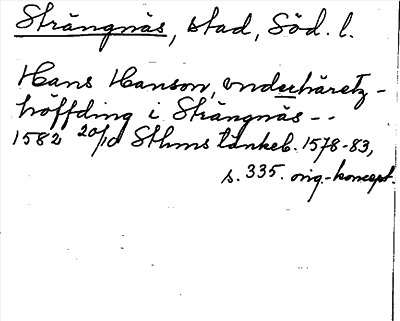 Strängnäs, stad, Söd. l.
Hans Hanson, vnderhäretz-
höffding i Strängnäs --
1582 20/10 Sthms tänkeb. 1578-83,
s. 335. orig.-koncept.